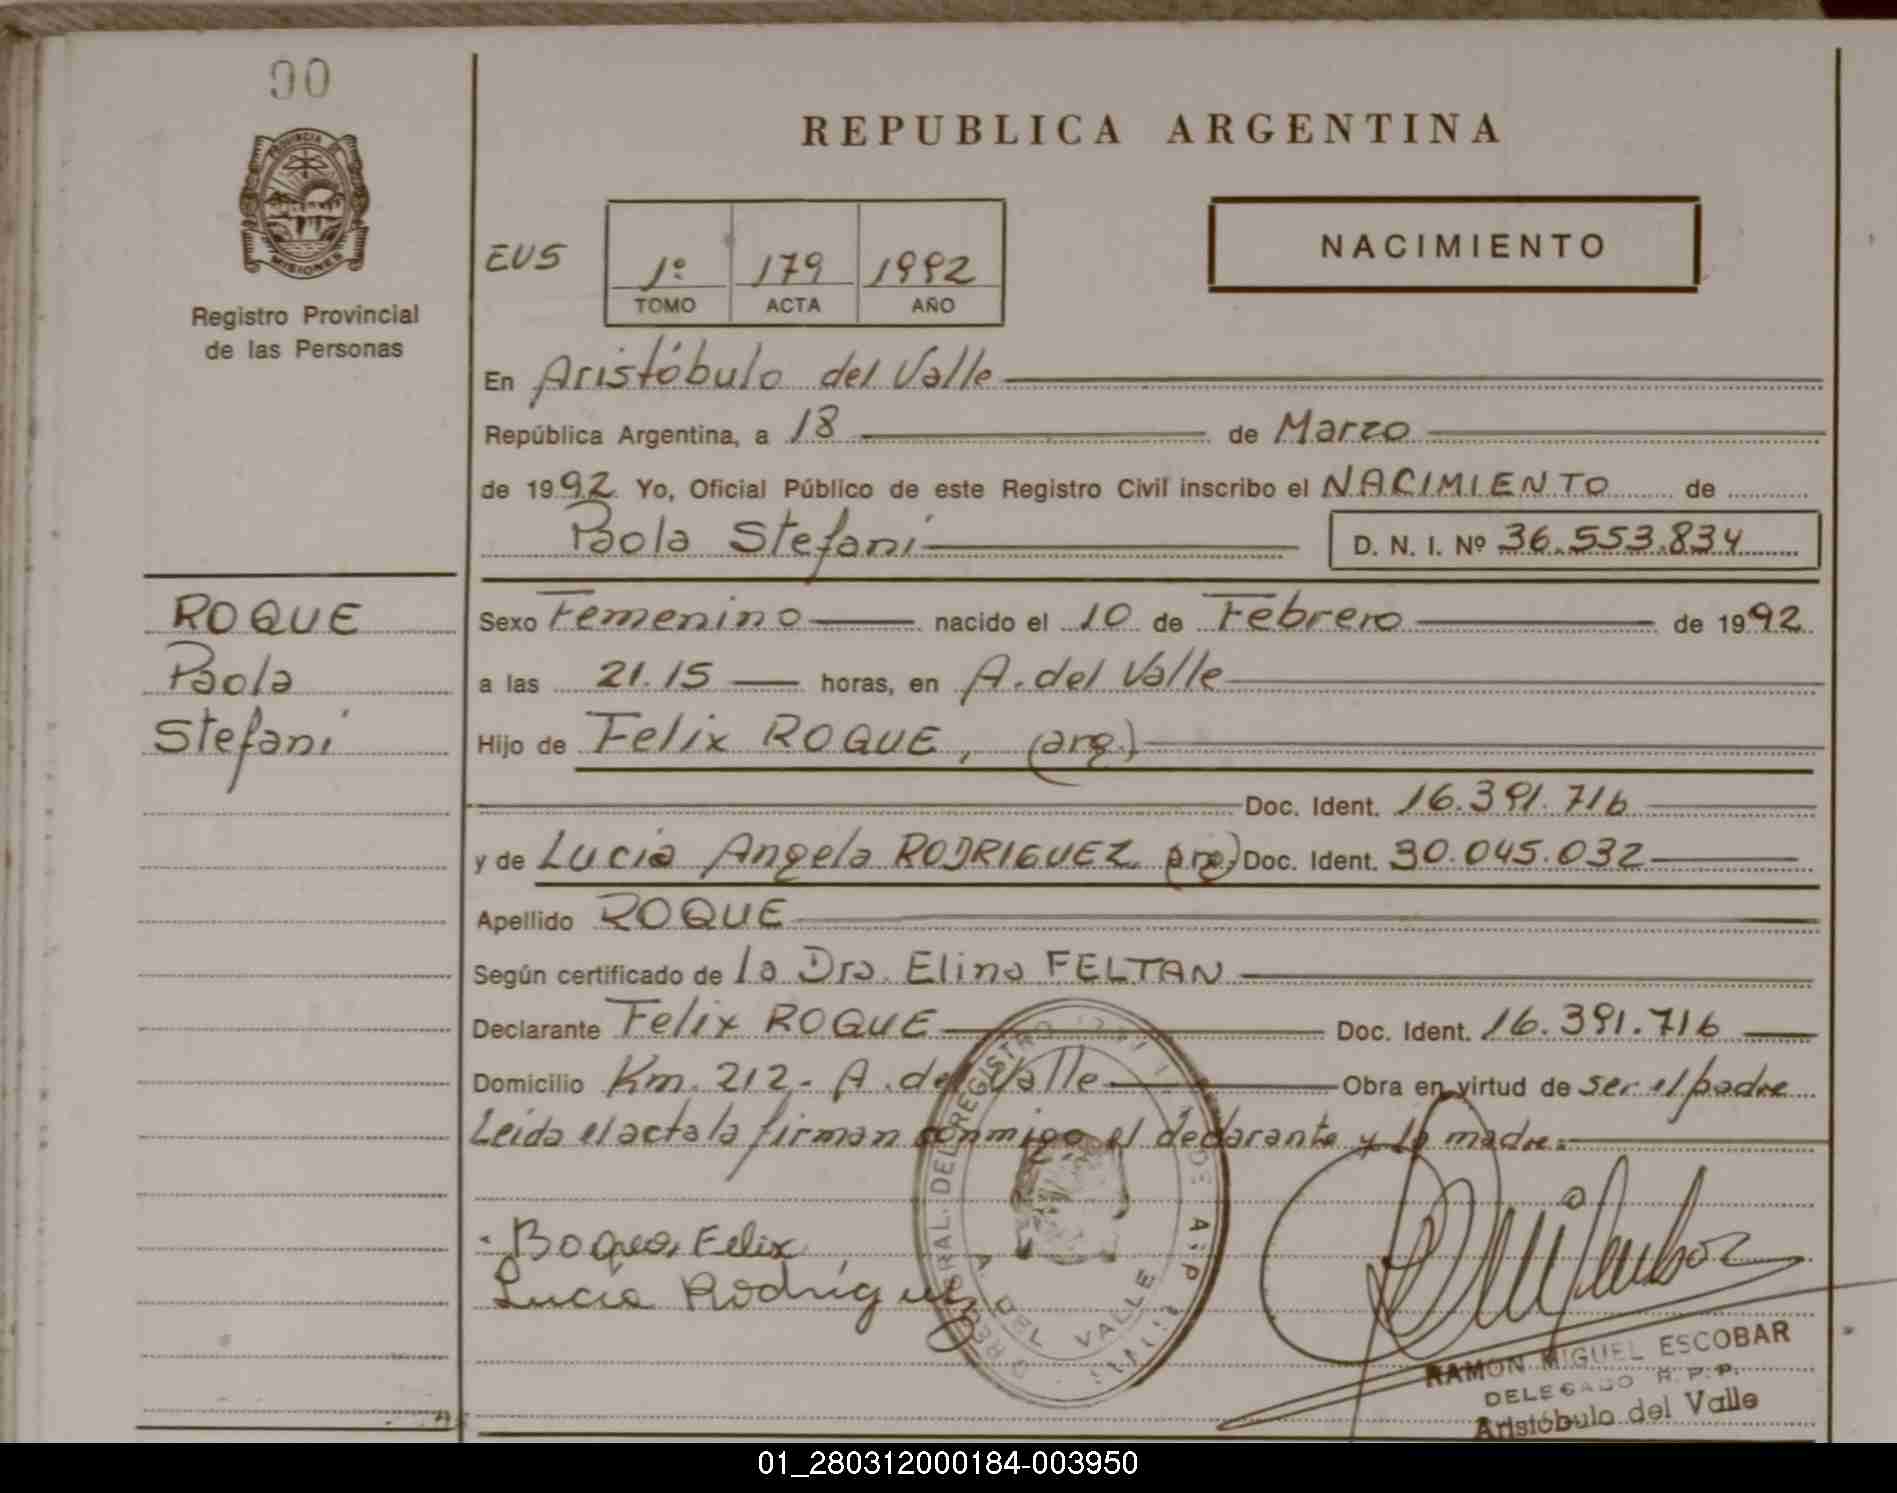 00
PROVINCIA
MISIONES
Registro Provincial
de las Personas
ROQUE
Paola
Stefani
REPUBLICA ARGENTINA
EUS
1º 179 1992
TOMO ACTA AÑO
NACIMIENTO
En Aristóbulo del Valle
República Argentina, a 18 de Marzo
de 1992 Yo, Oficial Público de este Registro Civil inscribo el NACIMIENTO de
Paola Stefani D. N. I. Nº 36.553.834
Sexo Femenino nacido el 10 de Febrero de 1992
a las 21.15 horas, en A. del Valle
Hijo de Felix ROQUE, (arg.)
Doc. Ident. 16.391.716
y de Lucia Angela RODRIGUEZ (arg) Doc. Ident. 30.045.032
Apellido ROQUE
Según certificado de la Dra. Elina FELTAN
Declarante Felix ROQUE Doc. Ident. 16.391.716
Domicilio Km. 212 - A. del Valle Obra en virtud de ser el padre
Leída el acta la firman conmigo el declarante y la madre.
Felix
Lucia Rodriguez
DEL REGISTRO
A. DEL VALLE
RAMON MIGUEL ESCOBAR
DELEGADO R. P. P.
Aristóbulo del Valle
01_280312000184-003950